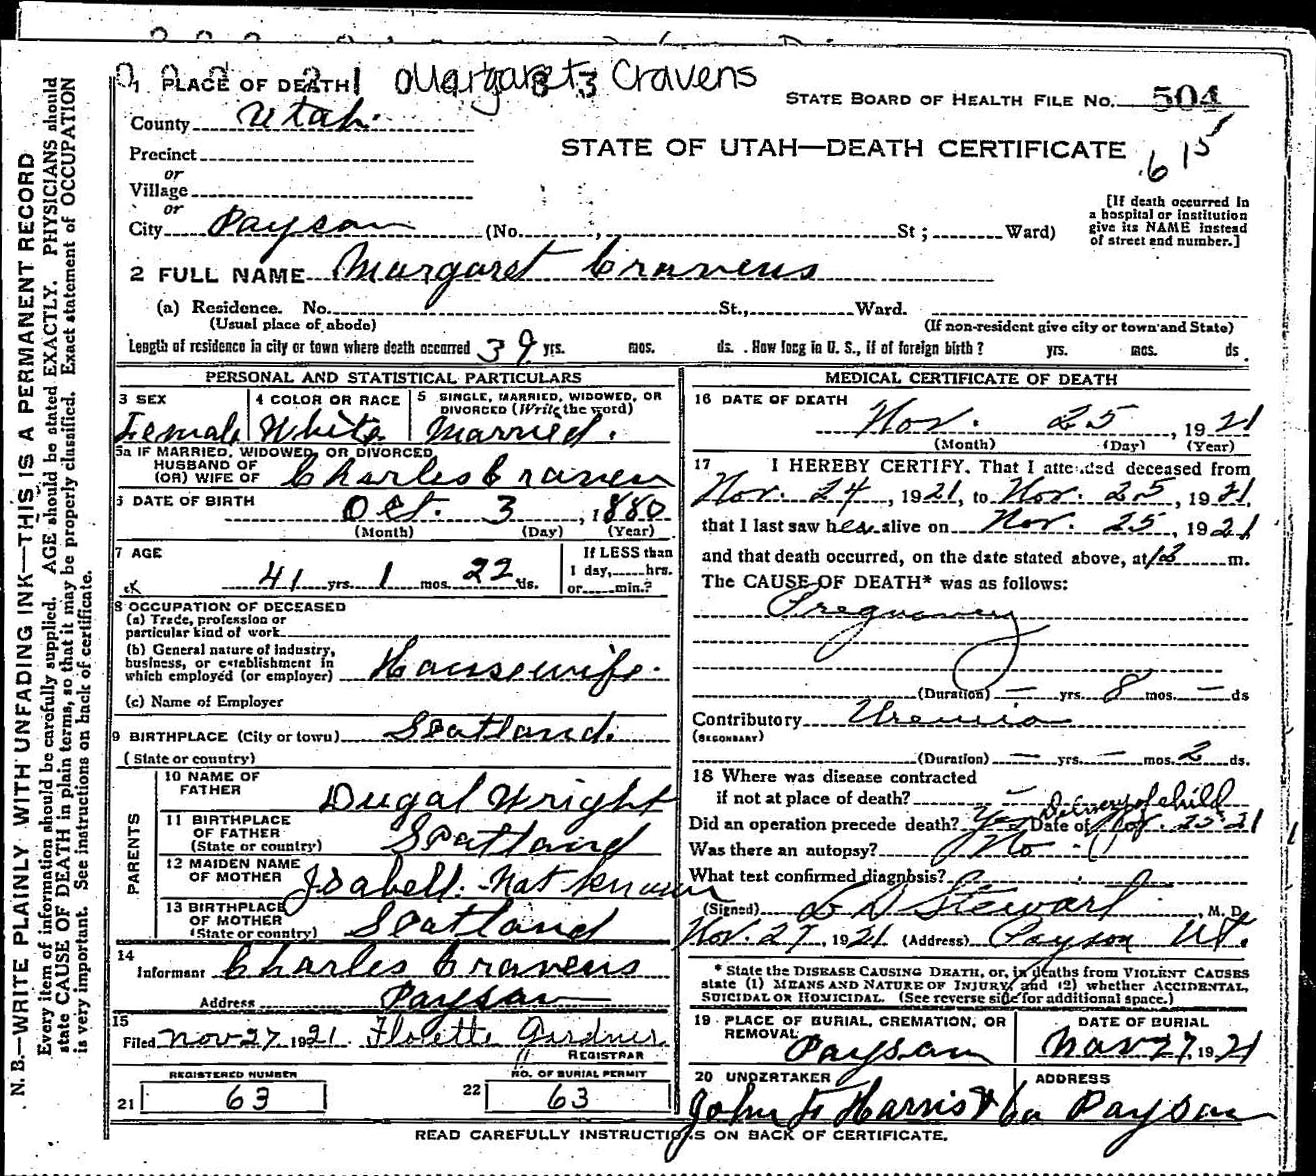 Margaret Cravens
1 PLACE OF DEATH
STATE BOARD OF HEALTH FILE NO. 504
County Utah.
STATE OF UTAH—DEATH CERTIFICATE
615
Precinct
or
Village
or
City Payson (No. , St ; Ward)
[If death occurred in
a hospital or institution
give its NAME instead
of street and number.]
2 FULL NAME Margaret Cravens
(a) Residence. No. St., Ward.
(Usual place of abode) (If non-resident give city or town and State)
Length of residence in city or town where death occurred 39 yrs. mos. ds. How long in U. S., if of foreign birth? yrs. mos. ds.
PERSONAL AND STATISTICAL PARTICULARS
3 SEX 4 COLOR OR RACE 5 SINGLE, MARRIED, WIDOWED, OR
DIVORCED (Write the word)
Female White Married.
5a IF MARRIED, WIDOWED, OR DIVORCED
HUSBAND OF
(OR) WIFE OF Charles Craven
6 DATE OF BIRTH
Oct. 3, 1880
(Month) (Day) (Year)
7 AGE If LESS than
41 yrs. 1 mos. 22 ds. 1 day, hrs.
or min.?
8 OCCUPATION OF DECEASED
(a) Trade, profession or
particular kind of work
(b) General nature of industry,
business, or establishment in
which employed (or employer) Housewife.
(c) Name of Employer
9 BIRTHPLACE (City or town) Scotland.
(State or country)
PARENTS
10 NAME OF
FATHER Dugal Wright
11 BIRTHPLACE
OF FATHER
(State or country) Scotland
12 MAIDEN NAME
OF MOTHER Isabell. Not known
13 BIRTHPLACE
OF MOTHER
(State or country) Scotland
14
Informant Charles Cravens
Address Payson
15
Filed Nov 27 1921 Florette Gardner
REGISTRAR
REGISTERED NUMBER NO. OF BURIAL PERMIT
21 63 22 63
MEDICAL CERTIFICATE OF DEATH
16 DATE OF DEATH
Nov. 25, 1921
(Month) (Day) (Year)
17 I HEREBY CERTIFY, That I attended deceased from
Nov. 24, 1921, to Nov. 25, 1921
that I last saw her alive on Nov. 25, 1921
and that death occurred, on the date stated above, at 12 m.
The CAUSE OF DEATH* was as follows:
Pregnancy
(Duration) — yrs. 8 mos. — ds
Contributory Uremia
(SECONDARY)
(Duration) — yrs. — mos. 2 ds.
18 Where was disease contracted
if not at place of death? — Delivery of child
Did an operation precede death? Yes Date of Nov. 25-21
Was there an autopsy? No
What test confirmed diagnosis?
(Signed) L D Stewart, M. D.
Nov. 27, 1921 (Address) Payson Ut.
* State the DISEASE CAUSING DEATH, or, in deaths from VIOLENT CAUSES
state (1) MEANS AND NATURE OF INJURY, and (2) whether ACCIDENTAL,
SUICIDAL OR HOMICIDAL. (See reverse side for additional space.)
19 PLACE OF BURIAL, CREMATION, OR
REMOVAL Payson
DATE OF BURIAL
Nov 27, 1921
20 UNDERTAKER ADDRESS
John F Harris & Co Payson
READ CAREFULLY INSTRUCTIONS ON BACK OF CERTIFICATE.
N. B.—WRITE PLAINLY WITH UNFADING INK—THIS IS A PERMANENT RECORD
Every item of information should be carefully supplied. AGE should be stated EXACTLY. PHYSICIANS should
state CAUSE OF DEATH in plain terms, so that it may be properly classified. Exact statement of OCCUPATION
is very important. See instructions on back of certificate.